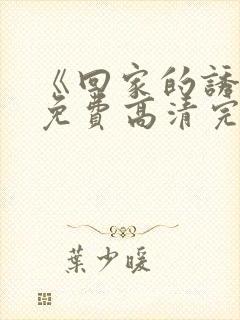 《回家的誘
免費高清完
葉少暖